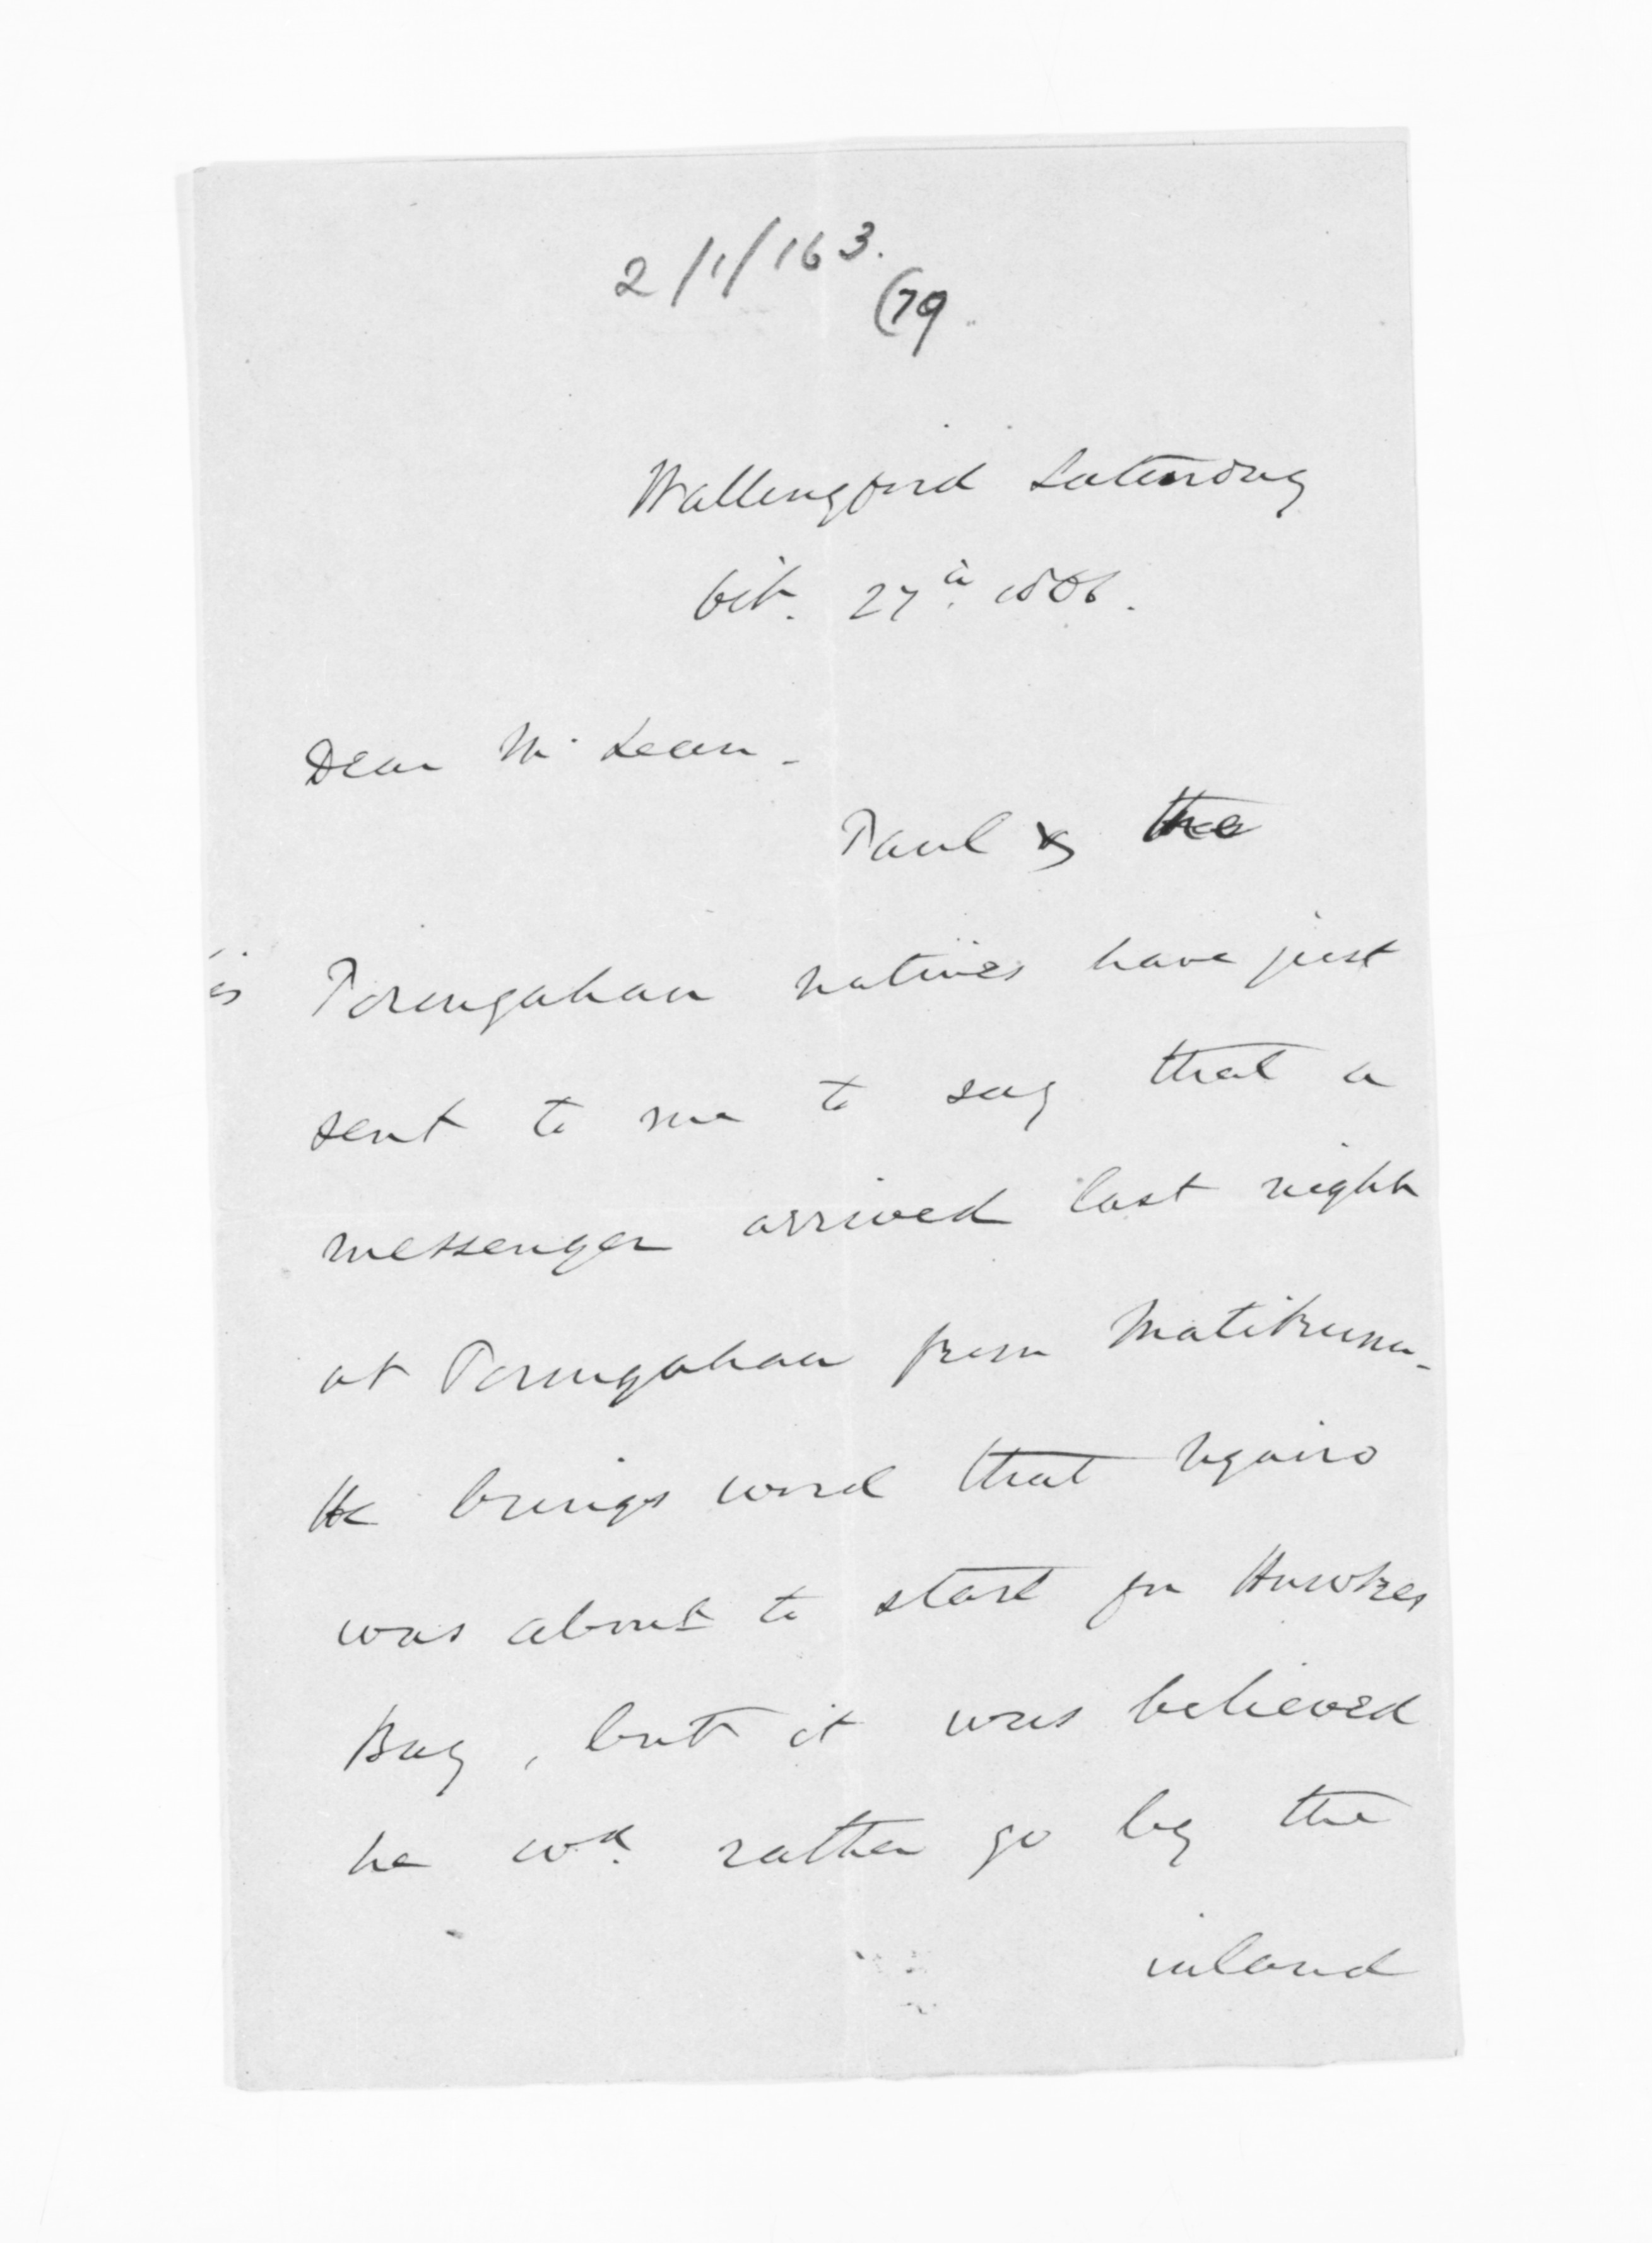 2/1/163.
(79.
Wallingford Saturday
Oct. 27th 1866.
Dear McLean -
Paul & the
Porangahau natives have just
sent to me to say that a
messenger arrived last night
at Porangahau from Matikuna -
He brings word that Ngairo
was about to start for Hawkes
Bay, but it was believed
he wd. rather go by the
inland